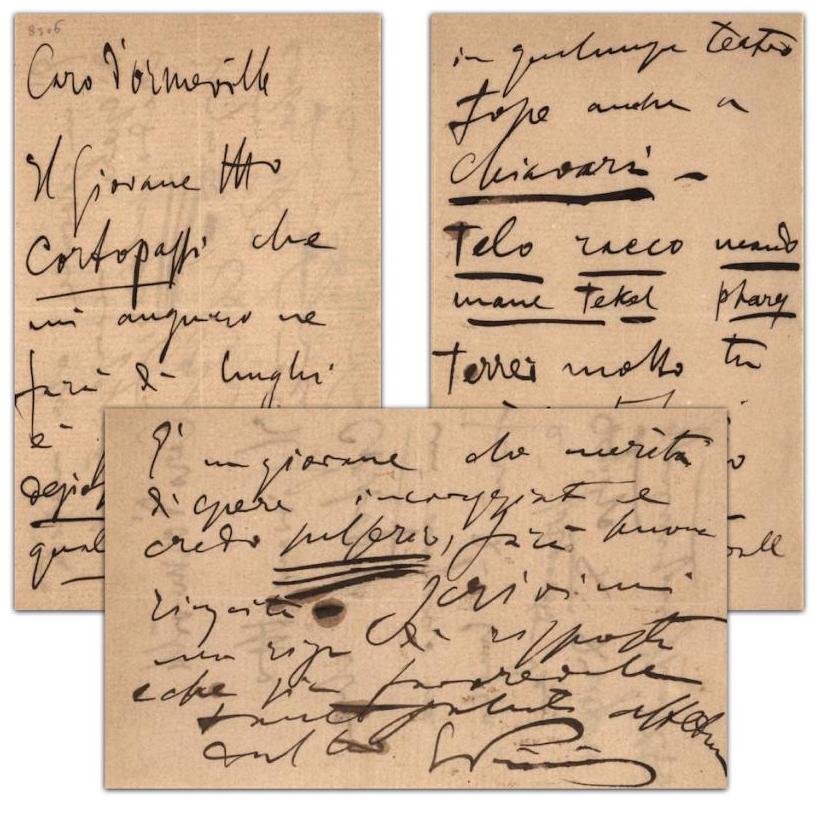 8306
Caro D'ormeville
Il Giovane
Cortopassi che
mi auguro ne
farà di lunghi
è
qual
in qualunque teatro
fosse anche a
Chiavari –
Telo racco mando
mane Tekel phares
Terrei molto tu
È un giovane che merita
di essere incoraggiato e
credo sul serio, farà buona
riuscita Scrivimi
una riga di risposta
e che sia favorevole
tanti saluti
dal tuo GPuccini